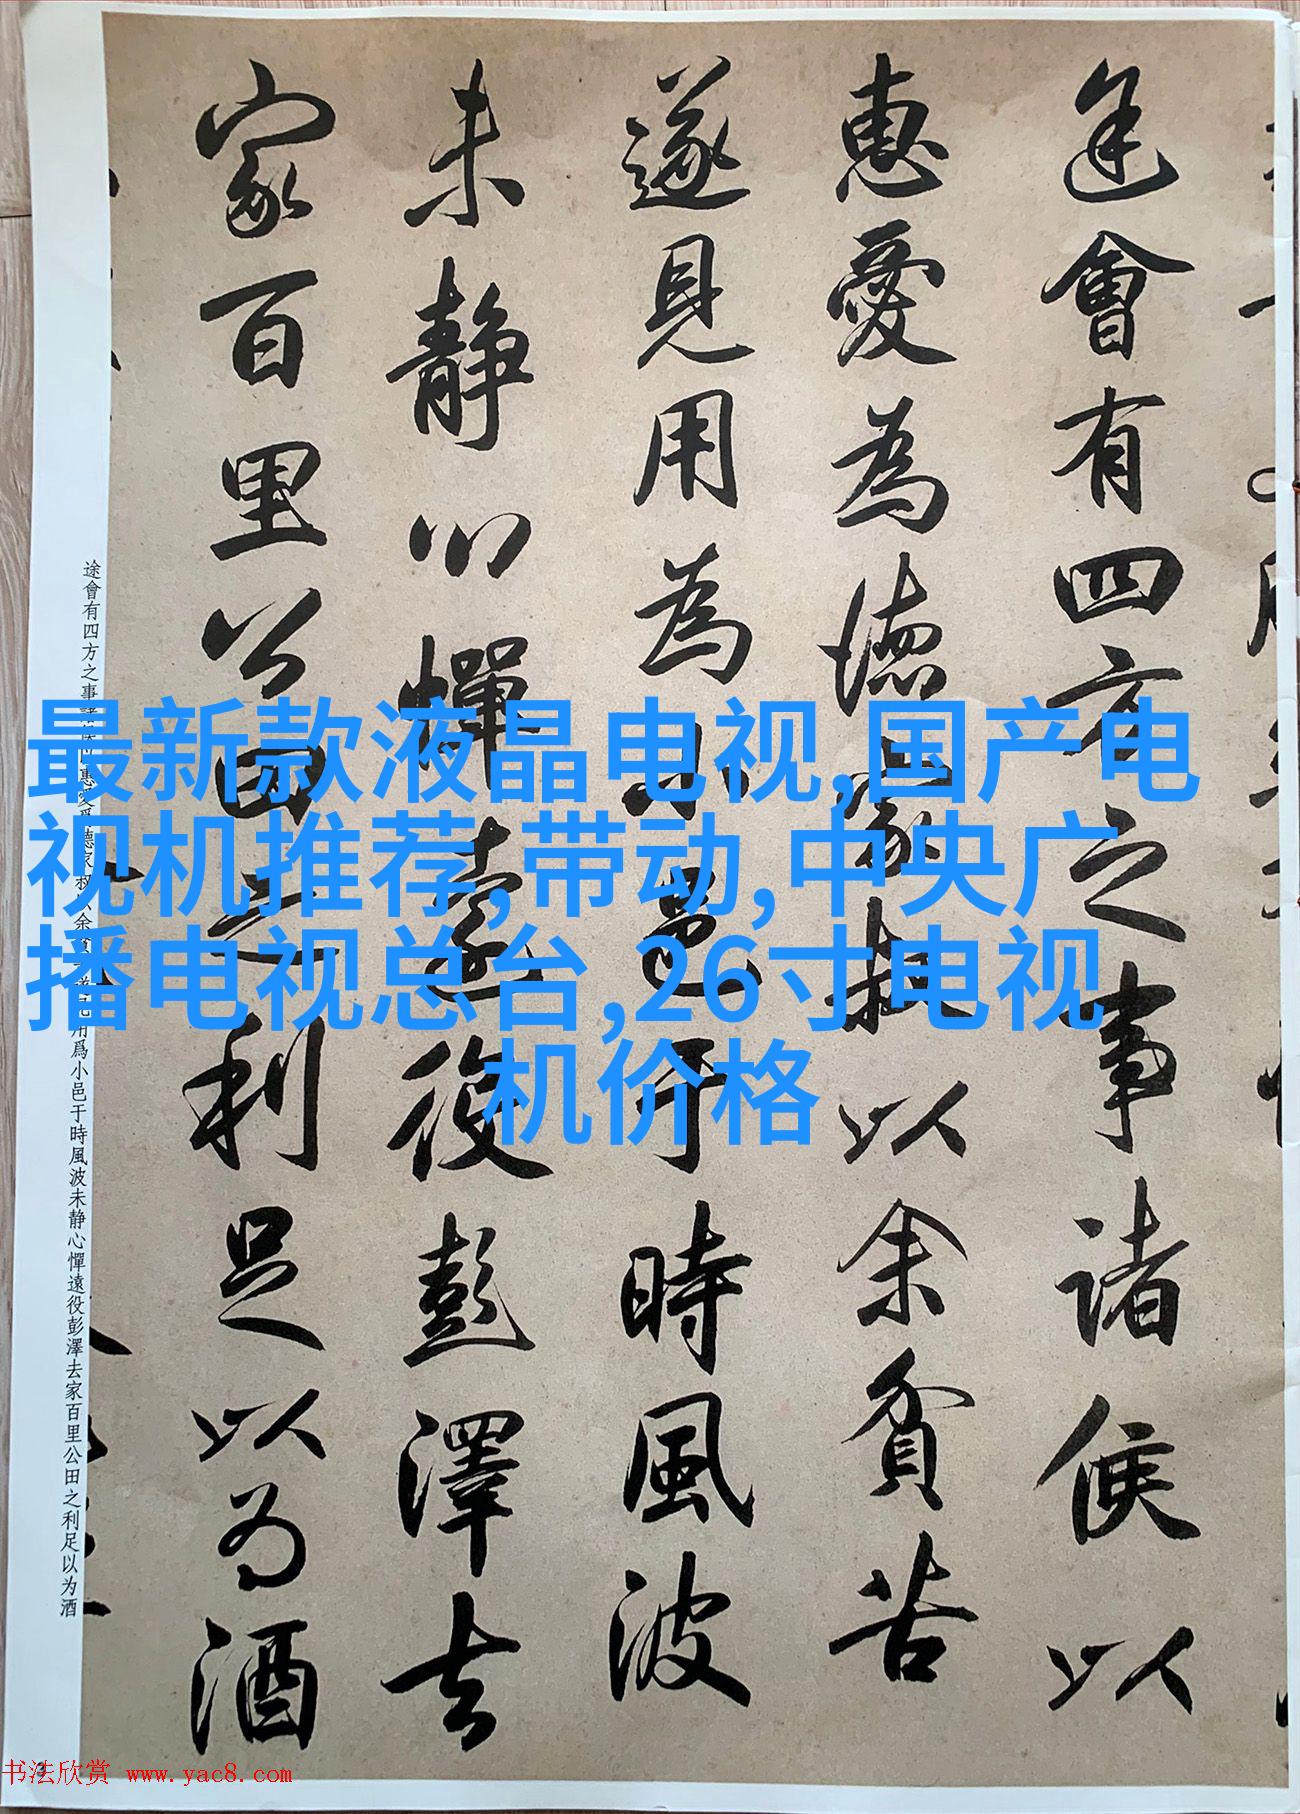 途會有四方之事諸侯以
惠愛為德家叔以余貧苦
遂見用為小邑于時風波
未靜心憚遠役彭澤去
家百里公田之利足以為酒
途會有四方之事諸侯以惠愛爲德家叔以余貧苦遂見用爲小邑于時風波未静心憚遠役彭澤去家百里公田之利足以为酒
最新款液晶电视,国产电
视机推荐,带动,中央广
播电视总台,26寸电视
机价格
书法欣赏 www.yac8.com